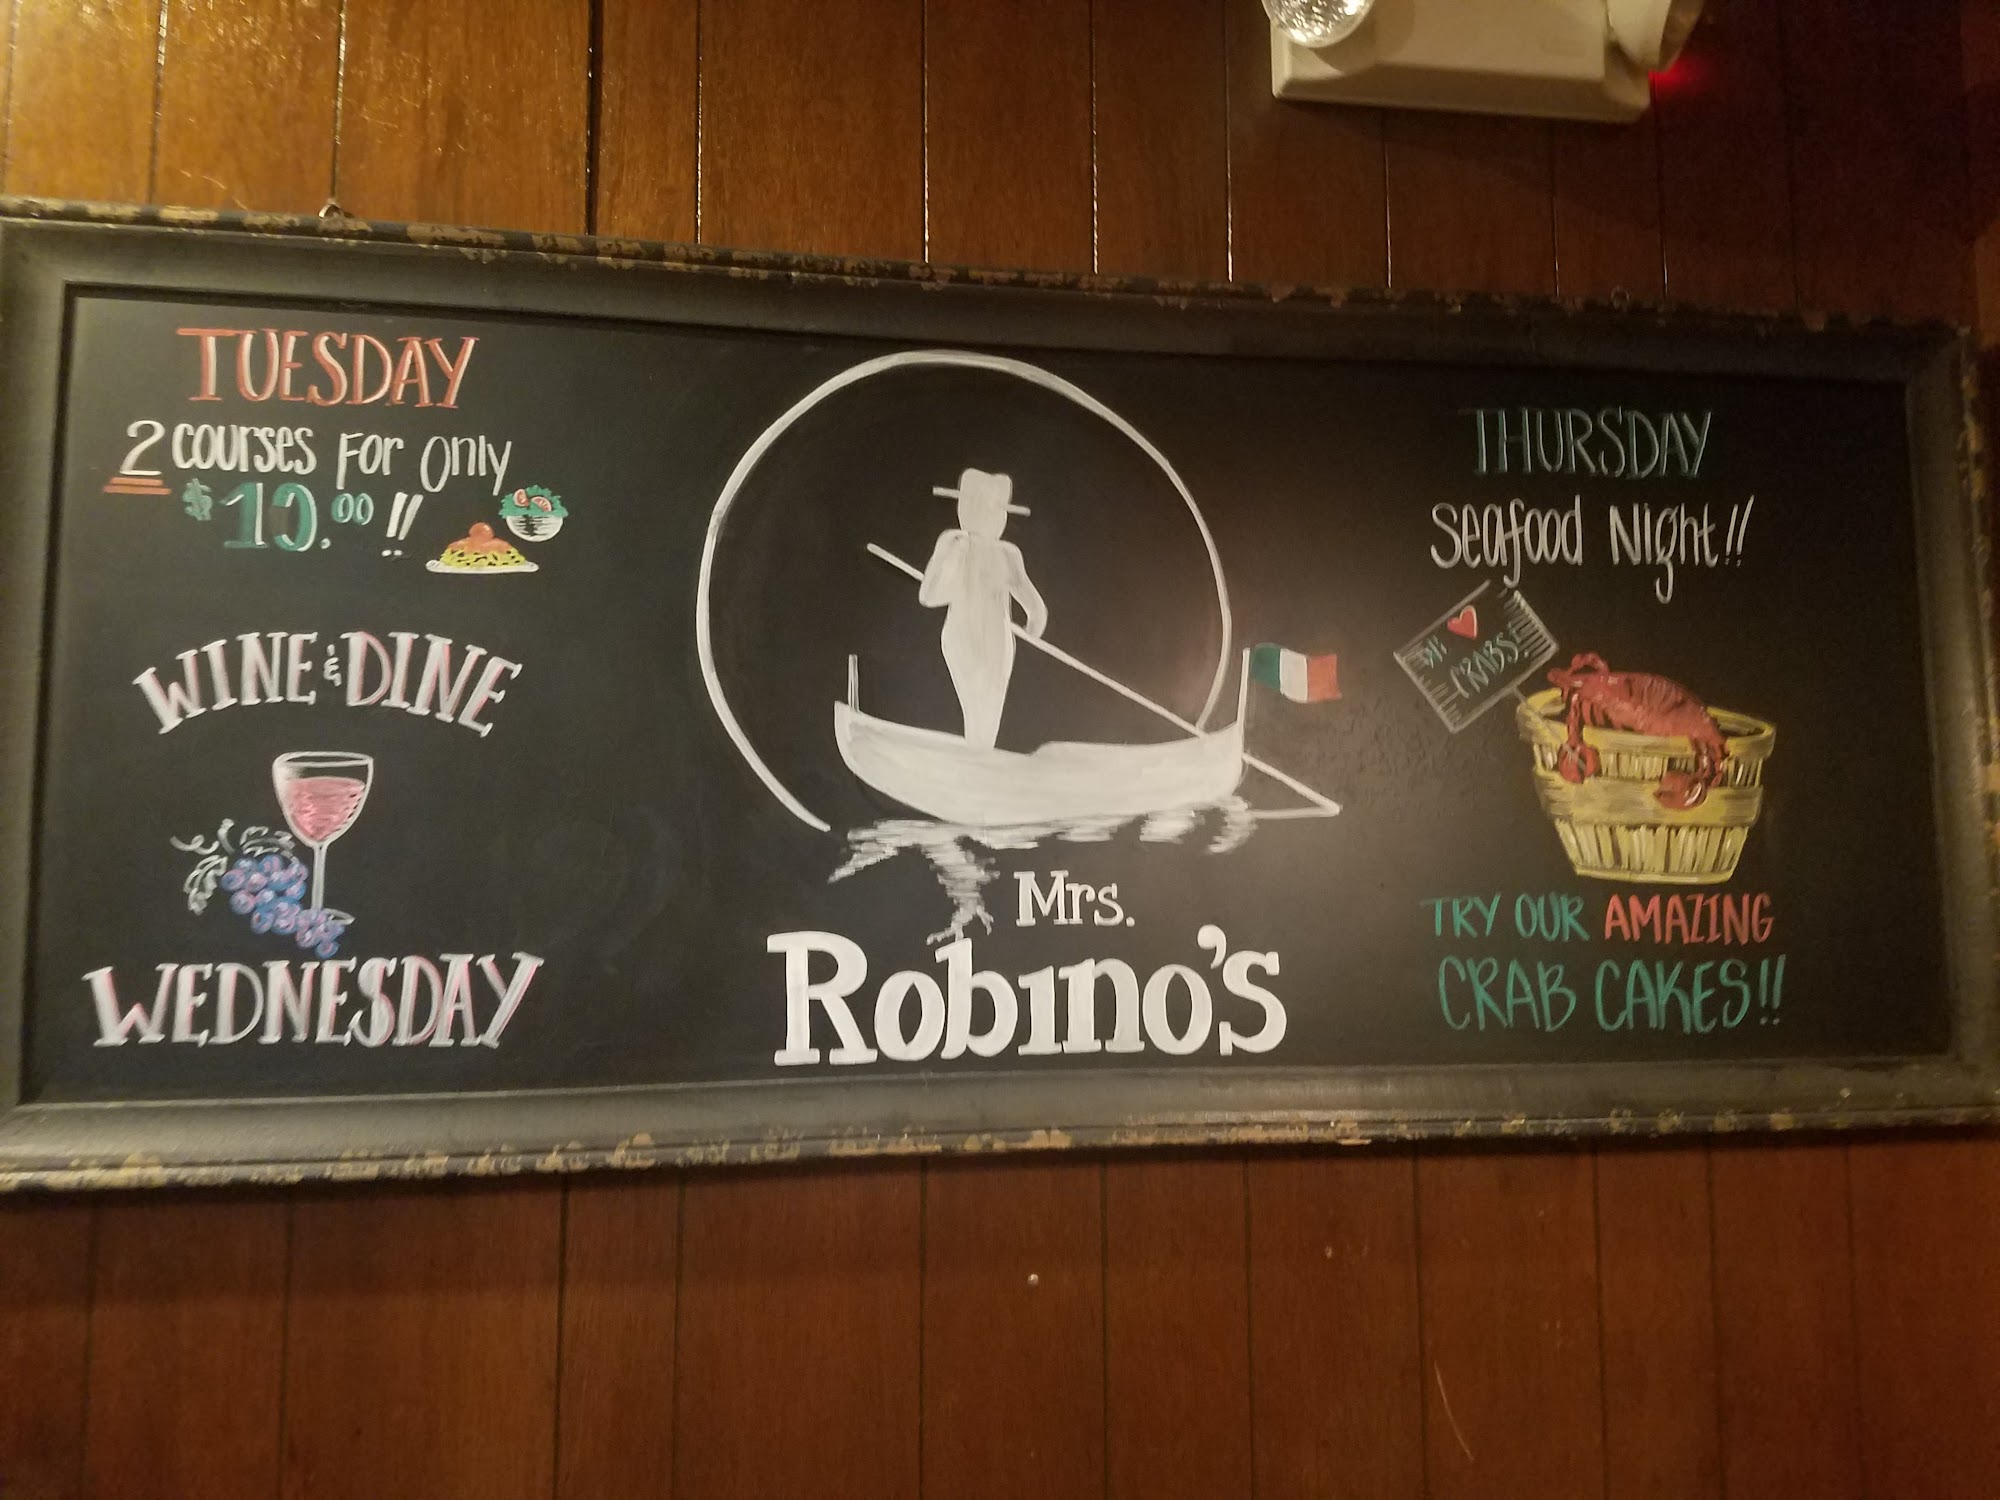 TUESDAY
2 courses for only
$10.00!!
WINE & DINE
WEDNESDAY
Mrs.
Robino's
THURSDAY
Seafood Night!!
CRABS!
TRY OUR AMAZING
CRAB CAKES!!